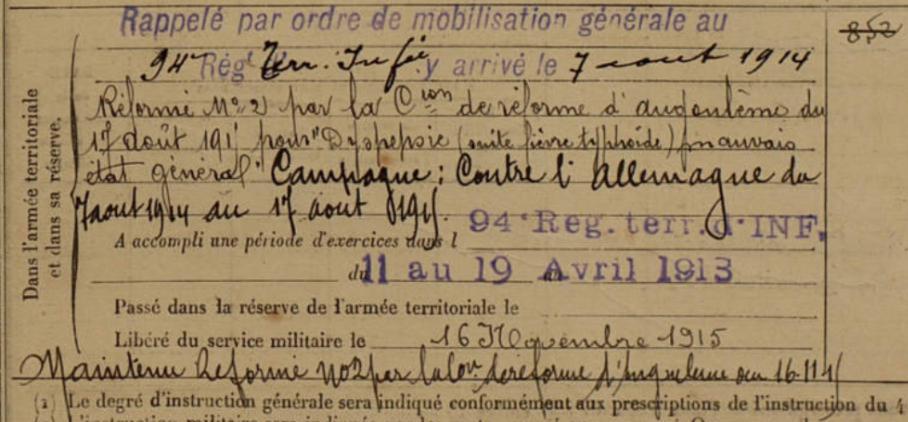 Rappelé par ordre de mobilisation générale au
852
94e Régt Terr. Infie y arrivé le 7 aout 1914
Réformé No 2 par la Cion de réforme d'angoulême du
17 août 191 pour "Dyspepsie (suite fièvre typhoïde) mauvais
état général" Campagne : Contre l'allemagne du
7 aout 1914 au 17 aout 1915.
A accompli une période d'exercices dans l 94e Reg. terr. d'INF.
du 11 au 19 Avril 1913
Passé dans la réserve de l'armée territoriale le
Libéré du service militaire le 16 Novembre 1915
Maintenu Réformé no 2 par la Con de réforme d'Angouleme du 16-11-15
(2) Le degré d'instruction générale sera indiqué conformément aux prescriptions de l'instruction du 4
Dans l'armée territoriale
et dans sa réserve.